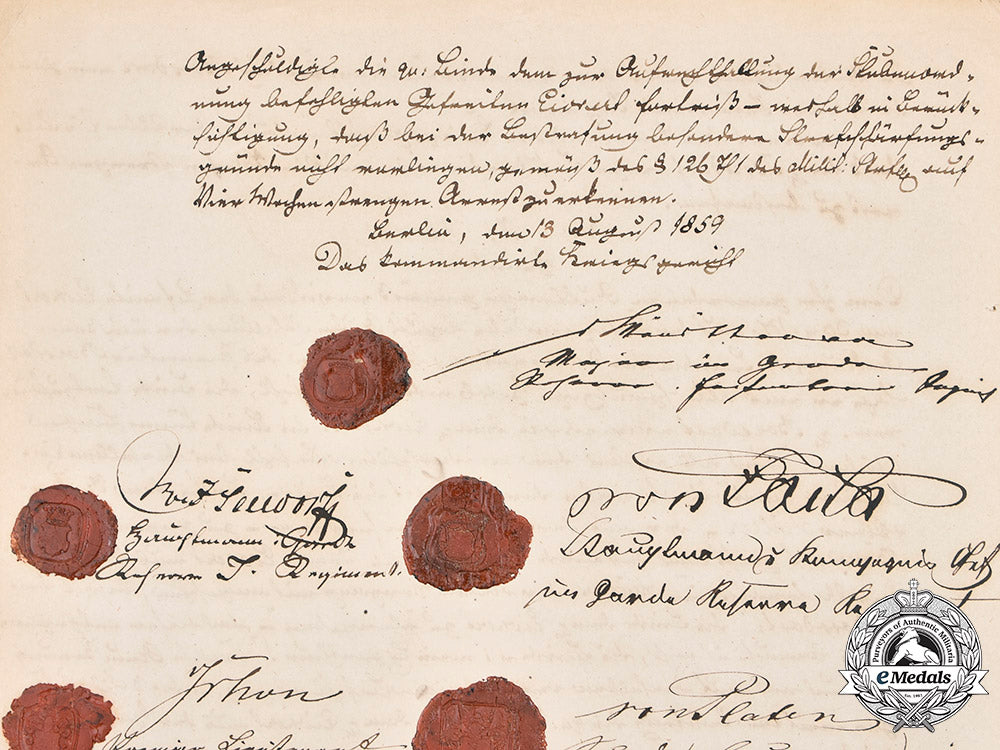 Angeschuldigte die qu: Binde dem zur Aufrechthaltung der Stubenord-
nung befehligten Gefreiten fortriß – weshalb in Berück-
sichtigung, daß bei der Bestrafung besondere Strafschärfungs-
gründe nicht vorliegen, gemäß des § 126 Th 1 des Milit: auf
Vier Wochen strengen Arrest zu erkennen.
Berlin, den 13 August 1859
Das kommandirte Kriegsgericht
Major im Garde
Reserve Infanterie
Hauptmann Garde
Reserve I. Regiment.
von
Hauptmann u Kompagnie Chef
im Garde Reserve Re
von Platen
Premier Lieutenant
Purveyors of Authentic Militaria
eMedals